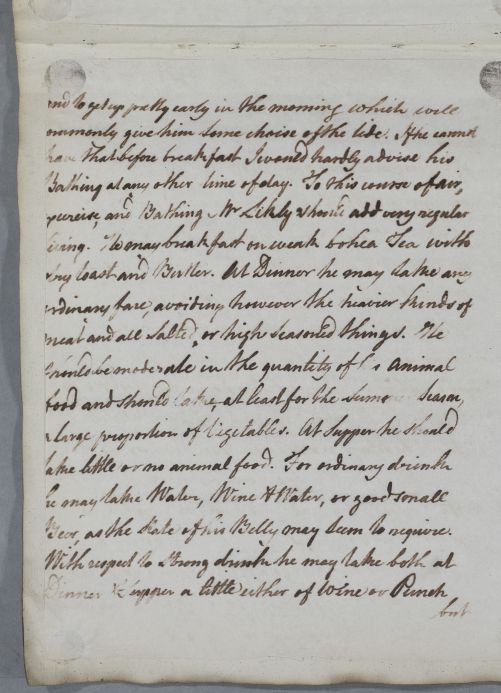 and to get up pretty early in the morning which will
ommonly give him some choice of the tide. If he cannot
have that before breakfast I would hardly advise his
Bathing at any other time of day. To this course of air,
exercise, and Bathing Mr Likly should add very regular
living. He may breakfast on weak bohea Tea with
dry toast and Butter. At Dinner he may take any
ordinary fare, avoiding however the heavier kinds of
meat and all salted, or high seasoned things. He
should be moderate in the quantity of his animal
food and should take, at least for the Summer Season,
a large proportion of Vegetables. At Supper he should
take little or no animal food. For ordinary drink
he may take Water, Wine & Water, or good small
Beer, as the State of his Belly may seem to require.
With respect to Strong drink he may take both at
Dinner & Supper a little either of Wine or Punch
but